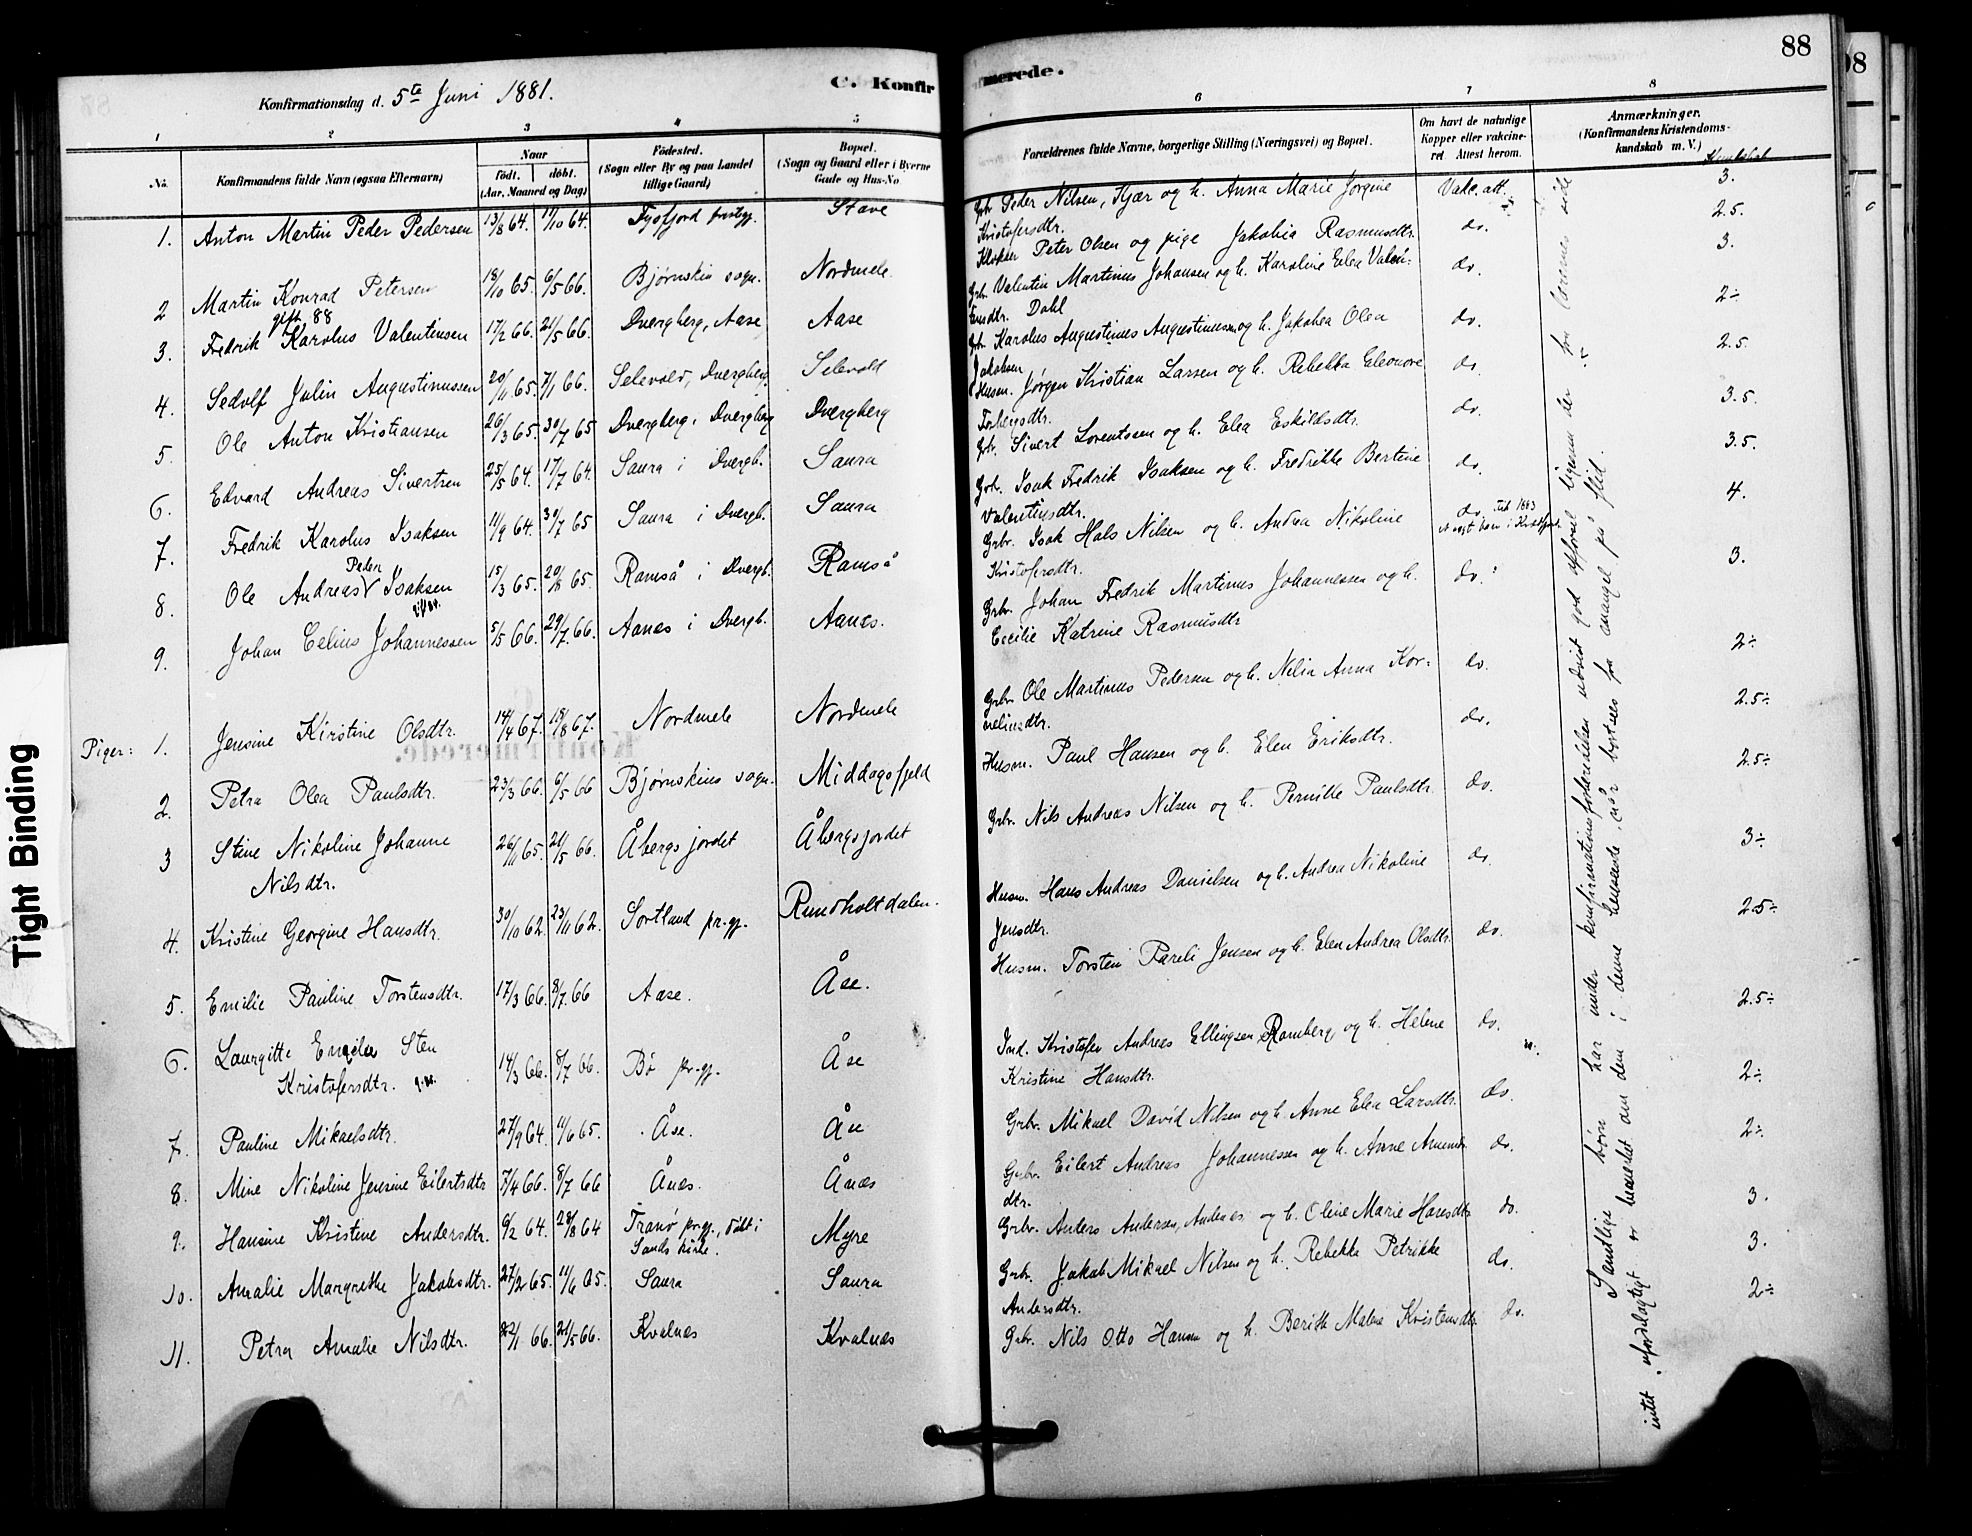 88
Konfirmationsdag d. 5te Juni 1881.
C. Konfirmerede.
1 2 3 4 5 6 7 8
No. Konfirmandens fulde Navn (ogsaa Efternavn) Naar født. døbt. (Aar, Maaned og Dag) Fødested. (Sogn eller By og paa Landet tillige Gaard) Bopæl. (Sogn og Gaard eller i Byerne Gade og Hus-No Forældrenes fulde Navne, borgerlige Stilling (Næringsvei) og Bopæl. Om havt de naturlige Kopper eller vakcineret. Attest herom. Anmærkninger. (Konfirmandens Kristendomskundskab m. V.)
1. Anton Martin Peder Pedersen 13/8 64. 17/10 64. Tysfjord prstgj. Stave Grb. Peder Nilsen, Kjær og h. Anna Marie Jørgine Kristofersdtr. Vakc. att. 3.
2 Martin Konrad Petersen 18/10 65. 6/5 66. Bjørnskin sogn. Nordmele Klokker Peter Olsen og pige Jakobia Rasmusdtr. do. 2.5.
gift 88
3. Fredrik Karolus Valentinsen 17/2 66. 21/5 66. Dvergberg, Aase Aase Grb. Valentin Martinus Johansen og h. Karoline Elen Dahl do. 3.
4. Sedolf Julin Augustinussen 20/11 65. 7/1 66. Selevold, Dvergberg. Selevold Grb. Karolus Augustinus Augustinussen og h. Jakobea Olea Jakobsen do. 2÷
5. Ole Anton Kristiansen 26/3 65. 30/7 65 Dvergberg, Dvergberg Dvergberg Husm. Jørgen Kristian Larsen og h. Rebekka Eleonore Torbergsdtr. do. 2.5.
6. Edvard Andreas Sivertsen 25/5 64. 17/7 64. Saura i Dvergb. Saura Grb. Sivert Lorentssen og h. Elea Eskilsdtr. do. 3.5.
7. Fredrik Karolus Isaksen 11/9 64. 30/7 65 Saura i Dvergb. Saura Grb. Isak Fredrik Isaksen og h. Fredrikke Bertine Valentinsdtr. do. 3.5.
8. Ole Andreas Peder Isaksen 15/3 65. 20/8 65. Ramså i Dvergb. Ramså Grbr. Isak Hals Nilsen og h. Andrea Nikoline Kristofersdtr. do. 4.
9. Johan Celius Johannessen 5/5 66. 29/7 66. Aanes i Dvergb. Aanes. Grbr. Johan Fredrik Martinus Johannessen og h. Cecilie Katrine Rasmusdtr do. 3.
Piger: 1. Jensine Kirstine Olsdtr. 14/4 67. 18/8 67. Nordmele Nordmele Grbr Ole Martinus Pedersen og h. Nelia Anna Kornelinsdtr. do. 2÷
2. Petra Olea Paulsdtr. 23/3 66. 6/5 66 Bjørnskins sogn. Middagsfjeld Husm. Paul Hansen og h. Elen Eriksdtr. do. 2.5÷
3 Stine Nikoline Johanne Nilsdtr. 26/11 65. 21/5 66. Åbergsjordet Åbergsjordet Grbr. Nils Andreas Nilsen og h. Pernille Paulsdtr. do. 2.5÷
4. Kristine Georgine Hansdtr. 30/10 62. 23/11 62. Sortland pr.gj. Rundholtdalen. Husm. Hans Andreas Danielsen og h. Andrea Nikoline Jensdtr. do. 3÷
5. Emilie Pauline Torstensdtr. 17/3 66. 8/7 66 Aase. Åse. Husm. Torsten Pareli Jensen og h. Elen Andrea Olsdtr. do. 2.5÷
6. Laurgitte Emelia Sten Kristofersdtr. 14/3 66. 8/7 66. Bø pr.gj. Åse Ind. Kristofer Andreas Ellingsen Ramberg og h. Helene Kristine Hansdtr. do. 2.5÷
7. Pauline Mikaelsdtr. 27/9 64. 11/6 65. Åse. Åse Grbr. Mikael David Nilsen og h. Anne Elea Larsdtr. do. 2÷
8. Mine Nikoline Jensine Eilertsdtr 7/4 66. 8/7 66 Ånes. Ånes Grbr. Eilert Andreas Johannessen og h. Anne dtr. do. 2÷
9. Hansine Kristine Andersdtr. 6/2 64. 28/8 64 Tranø pr.gj., døbt i Sands kirke. Myre Grbr. Anders Andersen, Andenes og h. Oline Marie Hansdtr do. 3.
10. Amalie Margrethe Jakobsdtr. 27/2 65. 11/6 65. Saura Saura Grbr. Jakob Mikael Nilsen og h. Rebekka Petrikke Andersdtr. do. 3.
11. Petra Amalie Nilsdtr. 22/1 66. 21/5 66. Kvalnes Kvalnes Grbr. Nils Otto Hansen og h. Berith Malene Kristensdtr do. 2÷
Samtlige børn har under konfirmationsforberedelsen udvist god opførsel ligesom der fra lærernes side intet ufordelagtigt er bemærket om dem i denne henseende, når bortsees fra mangel på flid.
Konfirmerede.
Tight Binding